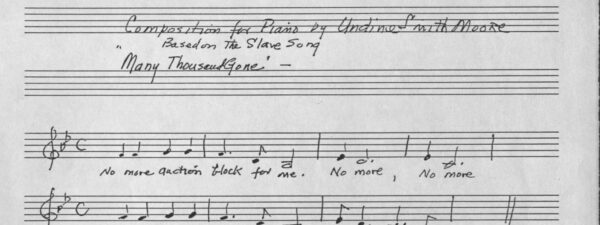 Composition for Piano by Undine Smith Moore
" Based on The Slave Song
Many Thousand Gone" —
No more auction block for me. No more, No more